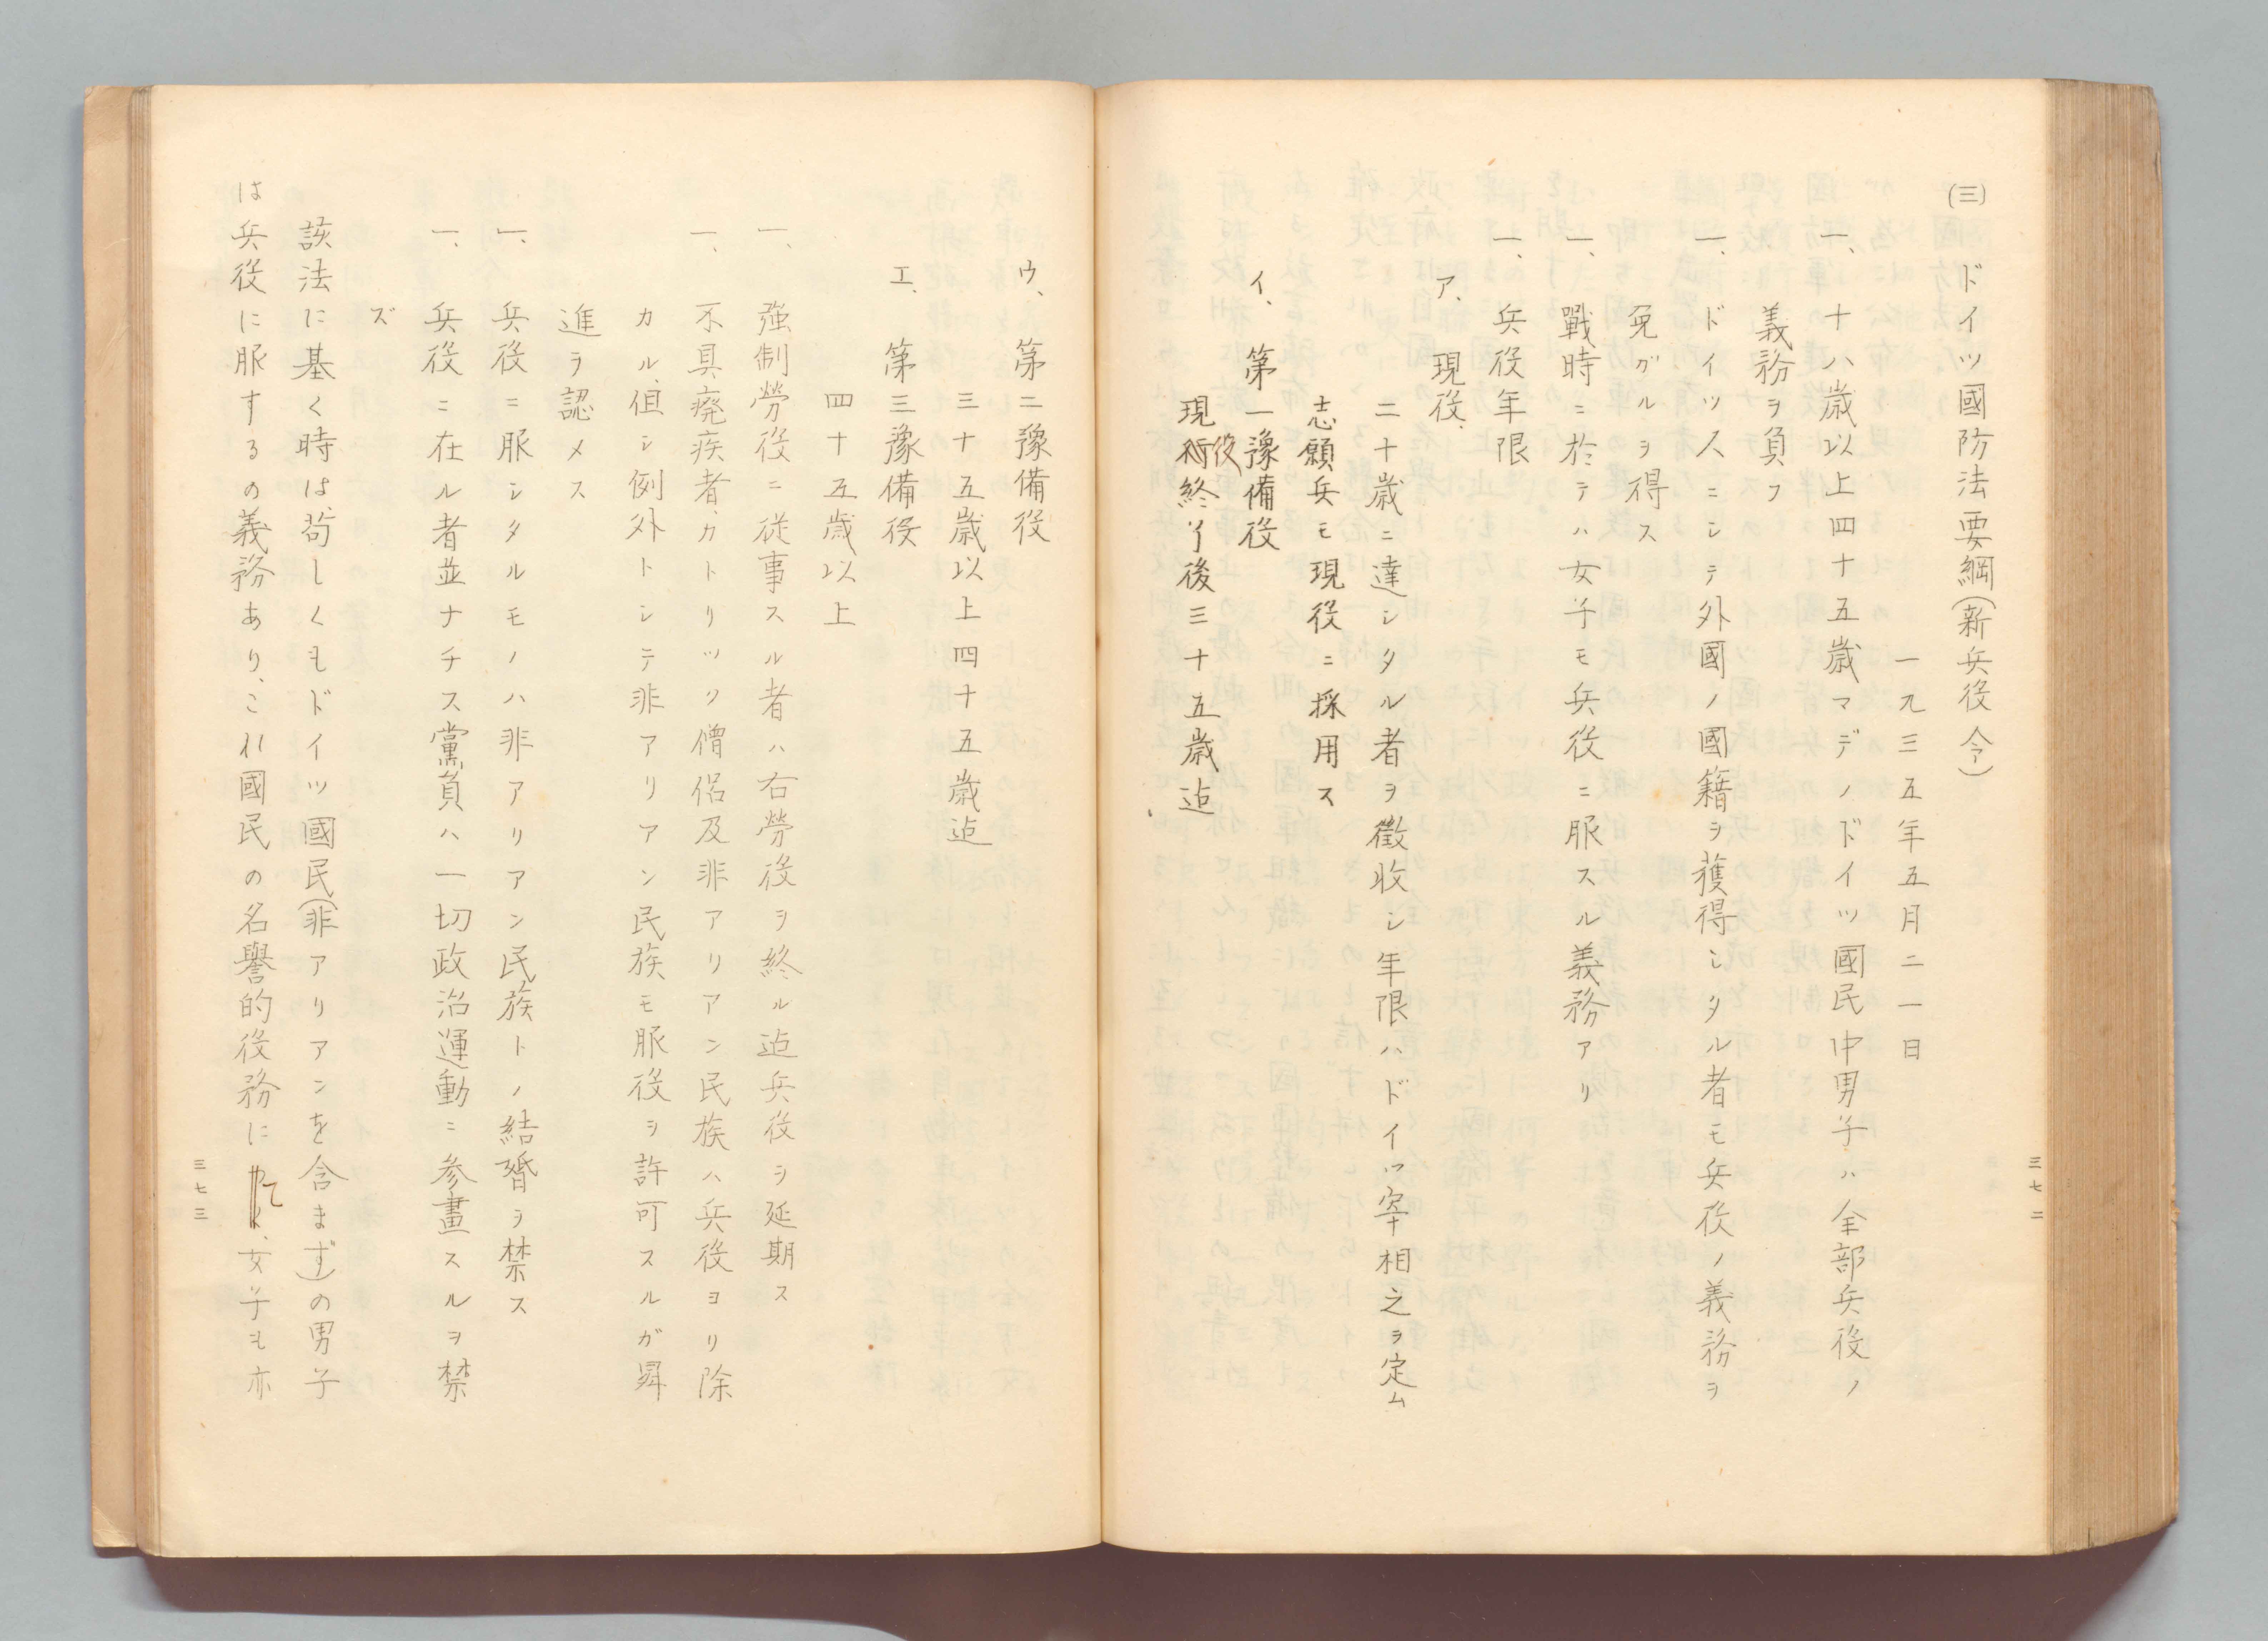 (三) ドイツ國防法要綱(新兵役令)
一九三五年五月二一日
一、十八歳以上四十五歳マデノドイツ國民中男子ハ全部兵役ノ
義務ヲ負フ
一、ドイツ人ニシテ外國ノ國籍ヲ獲得シタル者モ兵役ノ義務ヲ
免ガルヲ得ス
一、戰時ニ於テハ女子モ兵役ニ服スル義務アリ
一、兵役年限
ア、現役、
二十歳ニ達シタル者ヲ徵收シ年限ハドイツ宰相之ヲ定ム
志願兵モ現役ニ採用ス
イ、第一豫備役
現役終了後三十五歳迠
三七二
ウ、第二豫備役
三十五歳以上四十五歳迠
エ、第三豫備役
四十五歳以上
一、強制勞役ニ従事スル者ハ右勞役ヲ終ル迠兵役ヲ延期ス
一、不具癈疾者、カトリツク僧侶及非アリアン民族ハ兵役ヨリ除
カル、但シ例外トシテ非アリアン民族モ服役ヲ許可スルガ昇
進ヲ認メス
一、兵役ニ服シタルモノハ非アリアン民族トノ結婚ヲ禁ス
一、兵役ニ在ル者並ナチス黨員ハ一切政治運動ニ参畫スルヲ禁
ズ
該法に基く時は、苟しくもドイツ國民(非アリアンを含まず)の男子
は兵役に服するの義務あり、これ國民の名譽的役務にして、女子も亦
三七三